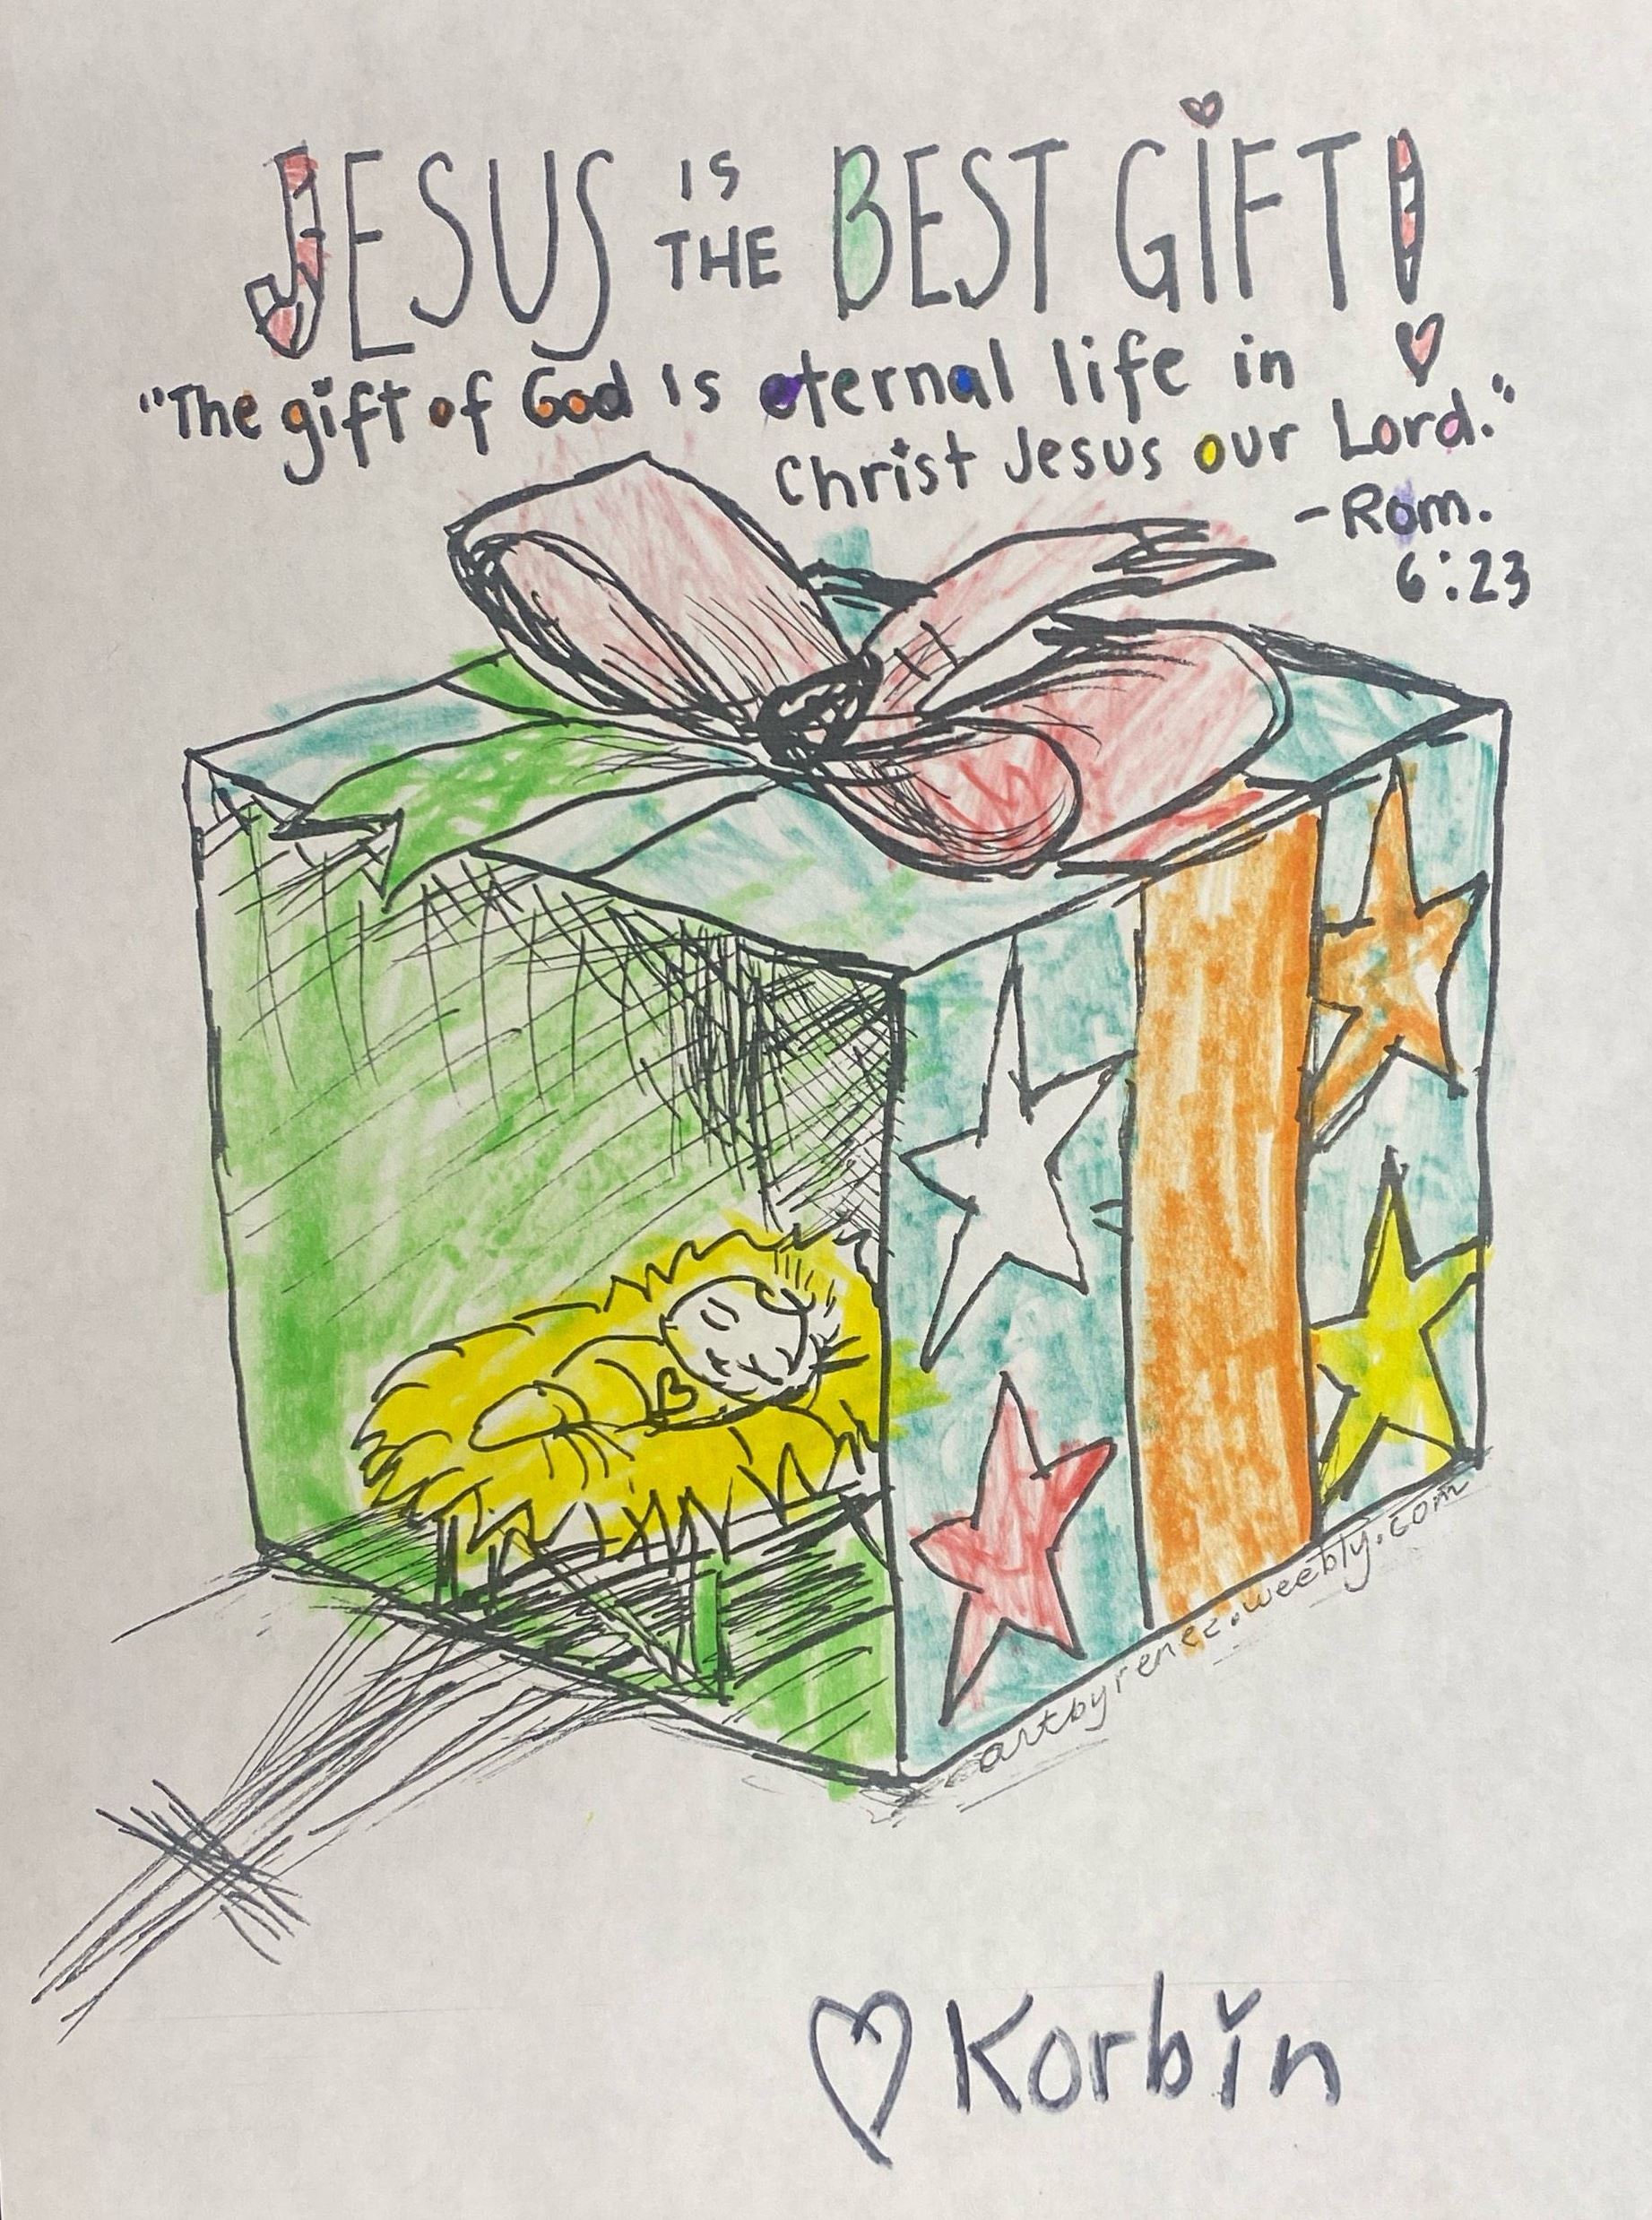 JESUS IS THE BEST GiFT!
"The gift of God is eternal life in
Christ Jesus our Lord."
-Rom.
6:23
artbyrenee.weebly.com
Korbin